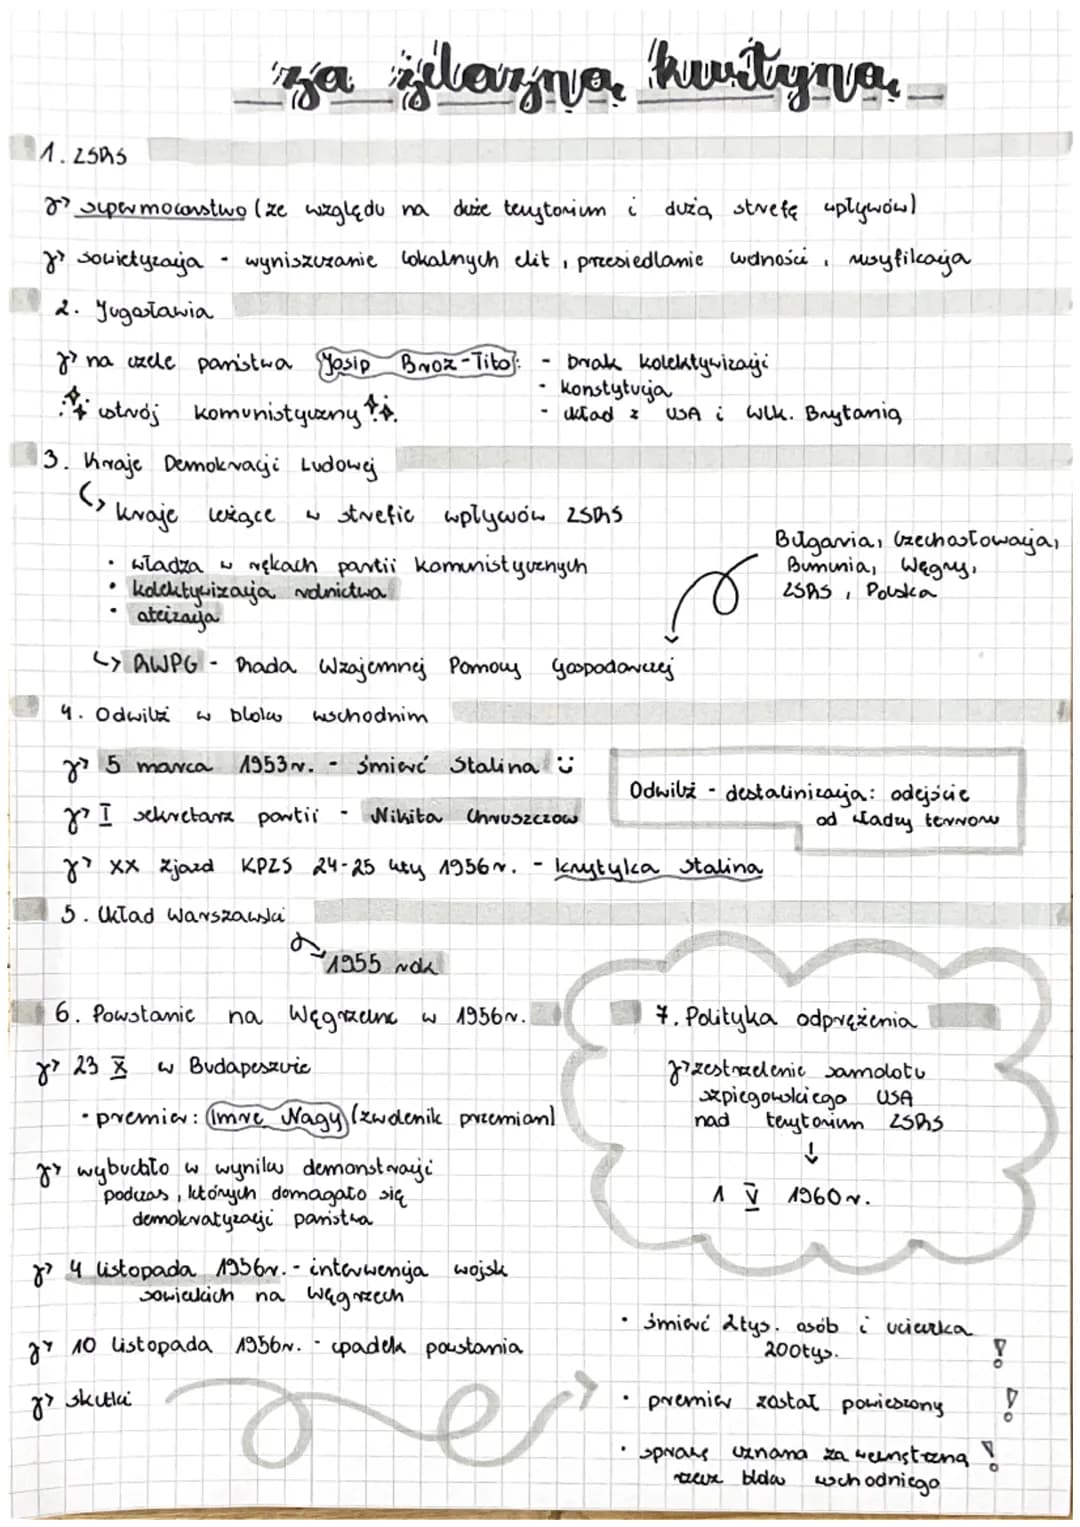 za żelazną kurtyną
1. ZSRS
supermocarstwo (ze względu na duże terytorium i dużą strefę wpływów)
sowietyzacja - wyniszczanie lokalnych elit, przesiedlanie wdności, rusyfikacja
2. Jugosławia
na czele państwa Josip Broz-Tito: - brak kolektywizacji
- konstytucja
ustrój komunistyczny
- układ z USA i Wlk. Brytanią
3. Kraje Demokracji Ludowej
kraje leżące w strefie wpływów ZSRS
• władza w rękach partii komunistycznych
• kolektywizacja rolnictwa
• ateizacja
Bułgaria, Czechosłowacja,
Rumunia, Węgry,
ZSRS, Polska
RWPG - Rada Wzajemnej Pomocy Gospodarczej
4. Odwilż w bloku wschodnim
5 marca 1953r. - śmierć Stalina
I sekretarz partii - Nikita Chruszczow
XX Zjazd KPZS 24-25 luty 1956r. - krytyka Stalina
Odwilż - destalinizacja: odejście
od władzy terroru
5. Układ Warszawski
1955 rok
6. Powstanie na Węgrzech w 1956r.
23 X w Budapeszcie
• premier: Imre Nagy (zwolenik przemian)
wybuchło w wyniku demonstracji
podczas, których domagało się
demokratyzacji państwa
4 listopada 1956r. - interwencja wojsk
sowieckich na Węgrzech
10 listopada 1956r. - upadek powstania
skutki
7. Polityka odprężenia
zestrzelenie samolotu
szpiegowskiego USA
nad terytorium ZSRS
↓
1 V 1960r.
• śmierć 2tys. osób i ucieczka
200tys. !
• premier został powieszony !
• sprawę uznana za wewnętrzną !
rzecz bloku wschodniego